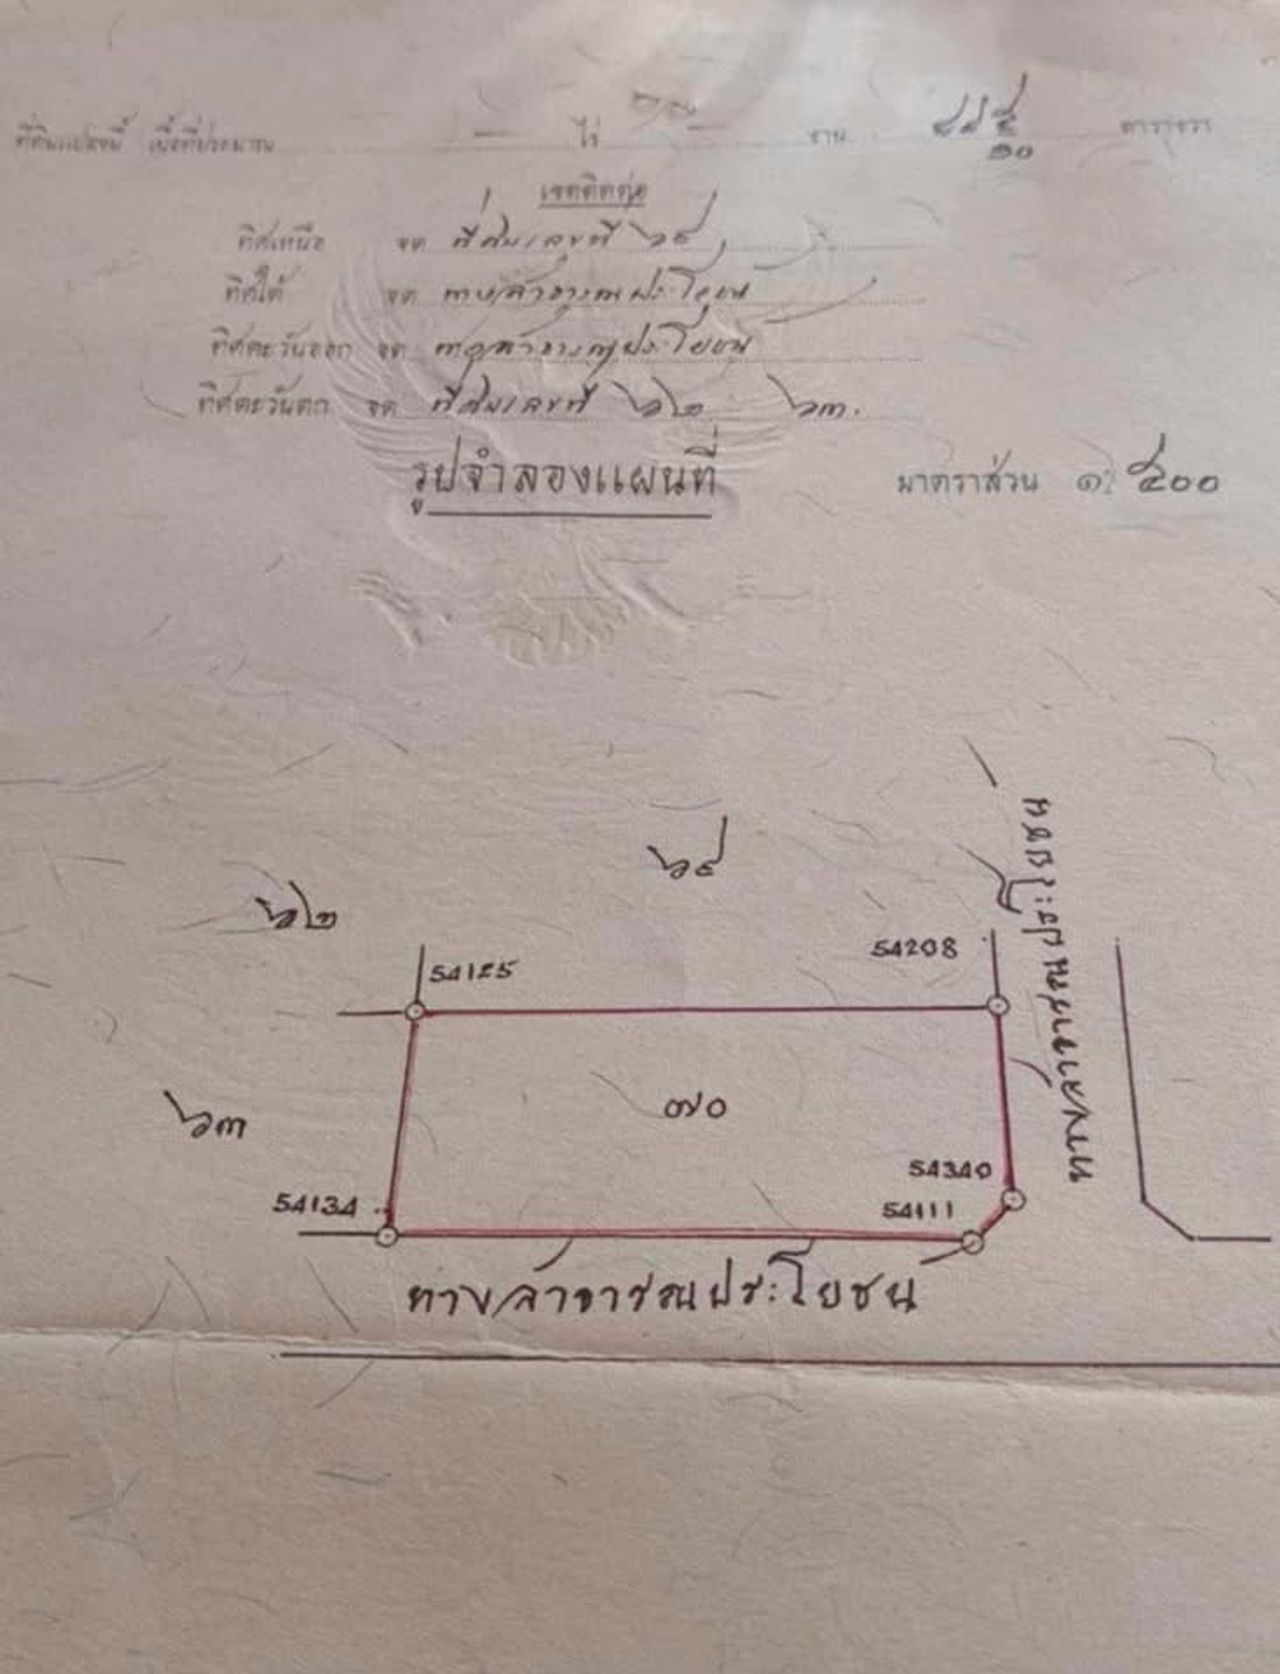 ที่ดินแปลงนี้ เนื้อที่ประมาณ — ไร่ — งาน ๘๘ ๕/๑๐ ตารางวา
เขตติดต่อ
ทิศเหนือ จด ที่ดินเลขที่ ๖๙
ทิศใต้ จด ทางสาธารณประโยชน์
ทิศตะวันออก จด ทางสาธารณประโยชน์
ทิศตะวันตก จด ที่ดินเลขที่ ๖๒ ๖๓.
รูปจำลองแผนที่ มาตราส่วน ๑: ๕๐๐
๖๙
๖๒
54125
54208
ทางสาธารณประโยชน์
๗๐
๖๓
54340
54134
54111
ทางสาธารณประโยชน์